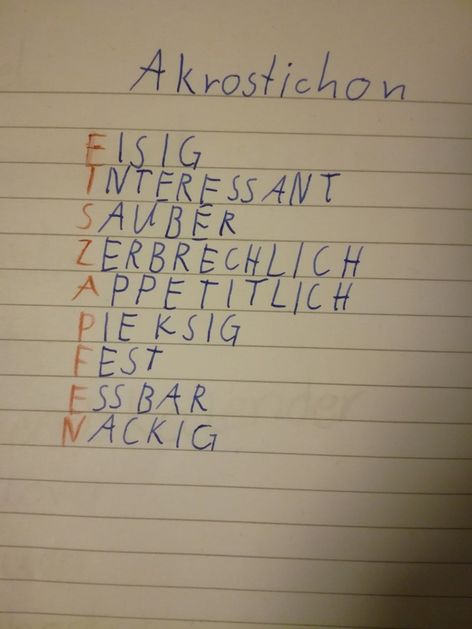 Akrostichon
EISIG
INTERESSANT
SAUBER
ZERBRECHLICH
APPETITLICH
PIEKSIG
FEST
ESSBAR
NACKIG